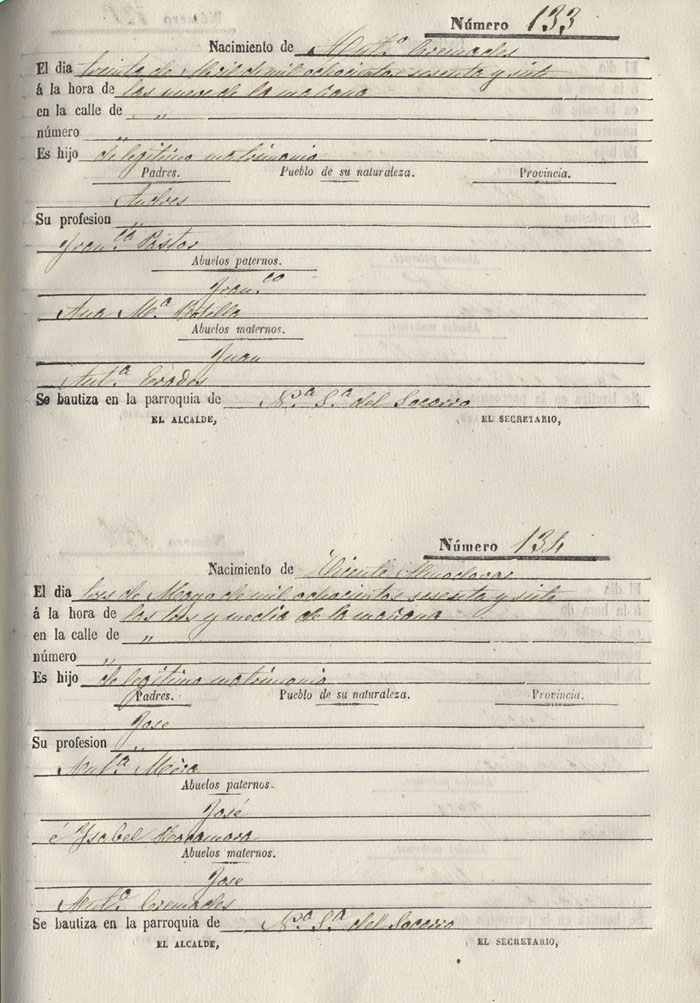 Número 133
Nacimiento de Ant.º Cremades
El dia treinta de Abril de mil ochocientos sesenta y siete
á la hora de las nueve de la mañana
en la calle de "
número "
Es hijo de legitimo matrimonio
Padres. Pueblo de su naturaleza. Provincia.
Andres
Su profesion "
Fran.ca Pastor
Abuelos paternos.
Fran.co
Ana M.a Botella
Abuelos maternos.
Juan
Ant.a
Se bautiza en la parroquia de N.a S.a del Socorro
EL ALCALDE, EL SECRETARIO,
Número 134
Nacimiento de Vicente
El dia tres de Mayo de mil ochocientos sesenta y siete
á la hora de las tres y media de la mañana
en la calle de "
número "
Es hijo de legitimo matrimonio
Padres. Pueblo de su naturaleza. Provincia.
José
Su profesion "
Ant.a Mira
Abuelos paternos.
José
é Ysabel Rocamora
Abuelos maternos.
Jose
Ant.a Cremades
Se bautiza en la parroquia de N.a S.a del Socorro
EL ALCALDE, EL SECRETARIO,